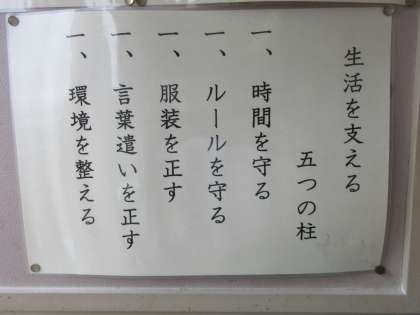 生活を支える
五つの柱
一、時間を守る
一、ルールを守る
一、服装を正す
一、言葉遣いを正す
一、環境を整える